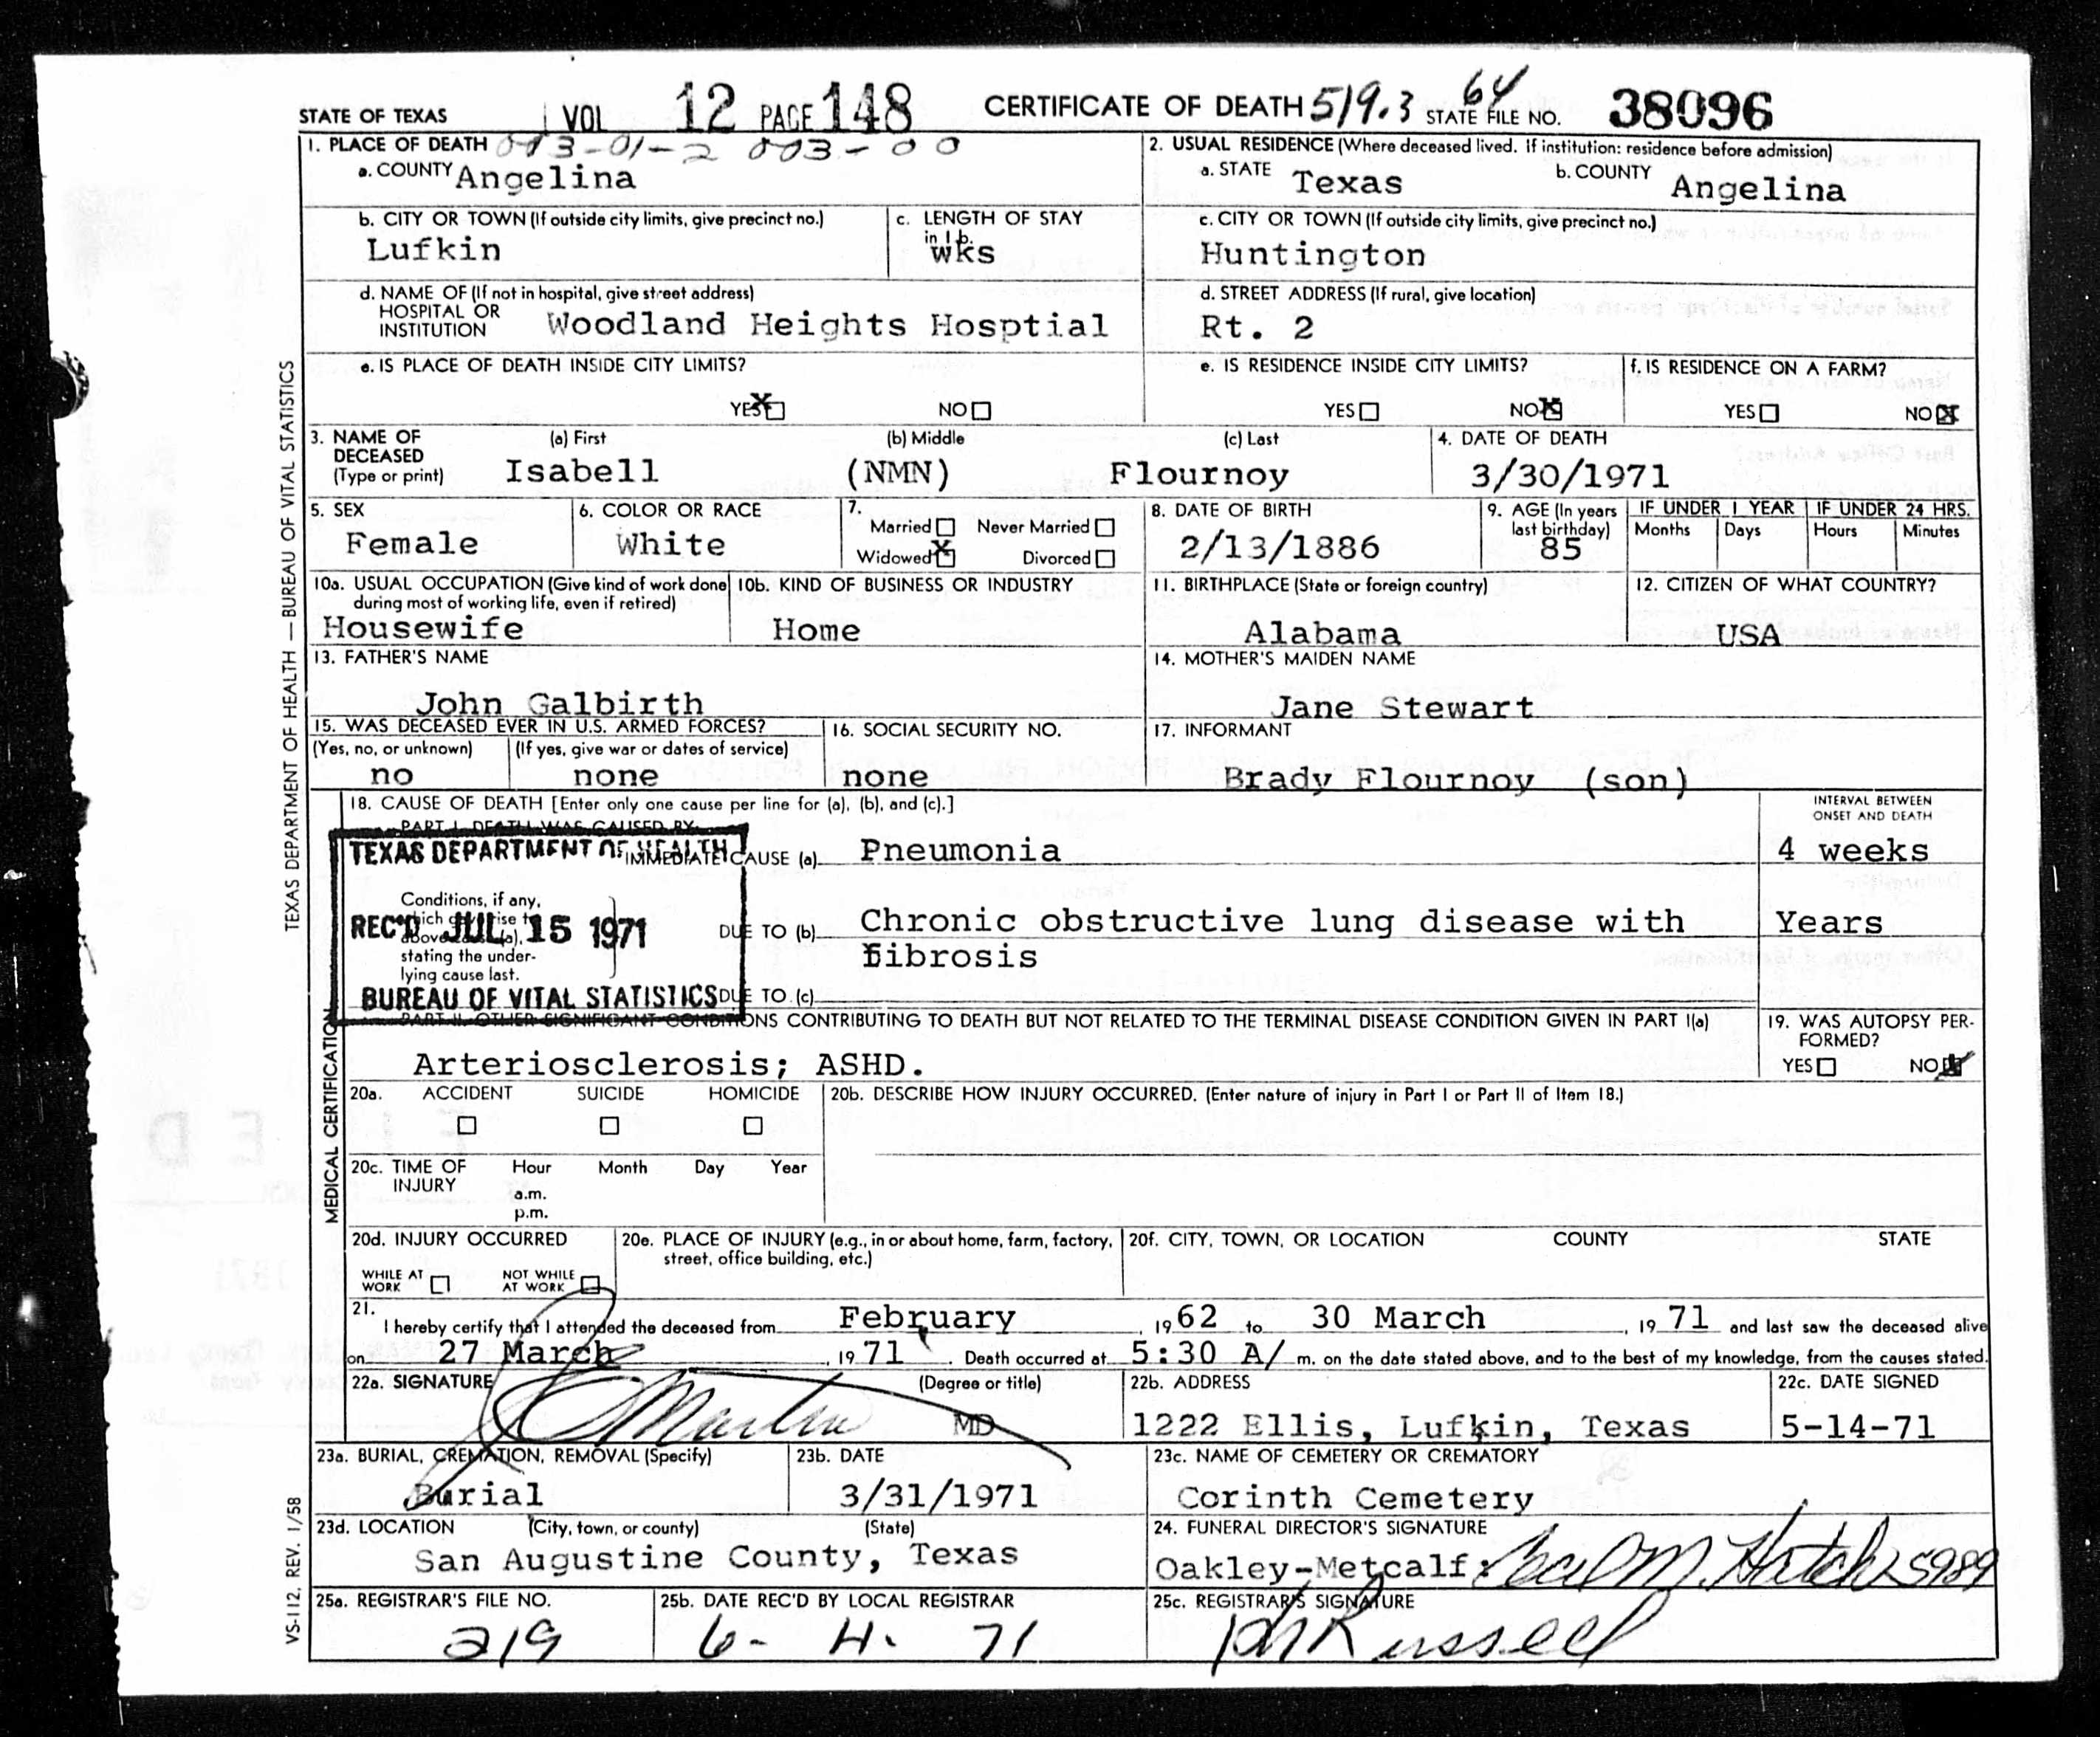 STATE OF TEXAS VOL 12 PAGE 148 CERTIFICATE OF DEATH 519.3 64 STATE FILE NO. 38096
1. PLACE OF DEATH 003-01-2 003-00
a. COUNTY Angelina
2. USUAL RESIDENCE (Where deceased lived. If institution: residence before admission)
a. STATE Texas b. COUNTY Angelina
b. CITY OR TOWN (If outside city limits, give precinct no.)
Lufkin
c. LENGTH OF STAY
in 1 b.
wks
c. CITY OR TOWN (If outside city limits, give precinct no.)
Huntington
d. NAME OF (If not in hospital, give street address)
HOSPITAL OR
INSTITUTION Woodland Heights Hosptial
d. STREET ADDRESS (If rural, give location)
Rt. 2
e. IS PLACE OF DEATH INSIDE CITY LIMITS?
YES X NO
e. IS RESIDENCE INSIDE CITY LIMITS?
YES NO X
f. IS RESIDENCE ON A FARM?
YES NO X
3. NAME OF
DECEASED
(Type or print)
(a) First (b) Middle (c) Last
Isabell (NMN) Flournoy
4. DATE OF DEATH
3/30/1971
5. SEX
Female
6. COLOR OR RACE
White
7.
Married Never Married
Widowed X Divorced
8. DATE OF BIRTH
2/13/1886
9. AGE (In years
last birthday)
85
IF UNDER 1 YEAR IF UNDER 24 HRS.
Months Days Hours Minutes
10a. USUAL OCCUPATION (Give kind of work done
during most of working life, even if retired)
Housewife
10b. KIND OF BUSINESS OR INDUSTRY
Home
11. BIRTHPLACE (State or foreign country)
Alabama
12. CITIZEN OF WHAT COUNTRY?
USA
13. FATHER'S NAME
John Galbirth
14. MOTHER'S MAIDEN NAME
Jane Stewart
15. WAS DECEASED EVER IN U.S. ARMED FORCES?
(Yes, no, or unknown) (If yes, give war or dates of service)
no none
16. SOCIAL SECURITY NO.
none
17. INFORMANT
Brady Flournoy (son)
18. CAUSE OF DEATH [Enter only one cause per line for (a), (b), and (c).]
PART I. DEATH WAS CAUSED BY:
INTERVAL BETWEEN
ONSET AND DEATH
TEXAS DEPARTMENT OF HEALTH
IMMEDIATE CAUSE (a) Pneumonia 4 weeks
Conditions, if any,
which gave rise to
above cause (a),
stating the under-
lying cause last.
REC'D JUL 15 1971
DUE TO (b) Chronic obstructive lung disease with Years
fibrosis
BUREAU OF VITAL STATISTICS
DUE TO (c)
PART II. OTHER SIGNIFICANT CONDITIONS CONTRIBUTING TO DEATH BUT NOT RELATED TO THE TERMINAL DISEASE CONDITION GIVEN IN PART I(a)
Arteriosclerosis; ASHD.
19. WAS AUTOPSY PER-
FORMED?
YES NO X
20a. ACCIDENT SUICIDE HOMICIDE
20b. DESCRIBE HOW INJURY OCCURRED. (Enter nature of injury in Part I or Part II of Item 18.)
20c. TIME OF
INJURY
Hour Month Day Year
a.m.
p.m.
20d. INJURY OCCURRED
WHILE AT
WORK
NOT WHILE
AT WORK
20e. PLACE OF INJURY (e.g., in or about home, farm, factory,
street, office building, etc.)
20f. CITY, TOWN, OR LOCATION COUNTY STATE
21.
I hereby certify that I attended the deceased from February, 1962 to 30 March, 1971 and last saw the deceased alive
on 27 March, 1971. Death occurred at 5:30 A/ m. on the date stated above, and to the best of my knowledge, from the causes stated.
22a. SIGNATURE (Degree or title)
Martin MD
22b. ADDRESS
1222 Ellis, Lufkin, Texas
22c. DATE SIGNED
5-14-71
23a. BURIAL, CREMATION, REMOVAL (Specify)
Burial
23b. DATE
3/31/1971
23c. NAME OF CEMETERY OR CREMATORY
Corinth Cemetery
23d. LOCATION (City, town, or county) (State)
San Augustine County, Texas
24. FUNERAL DIRECTOR'S SIGNATURE
Oakley-Metcalf: M. 5989
25a. REGISTRAR'S FILE NO.
219
25b. DATE REC'D BY LOCAL REGISTRAR
6-4.71
25c. REGISTRAR'S SIGNATURE
Russell
TEXAS DEPARTMENT OF HEALTH — BUREAU OF VITAL STATISTICS
MEDICAL CERTIFICATION
VS-112, REV. 1/58